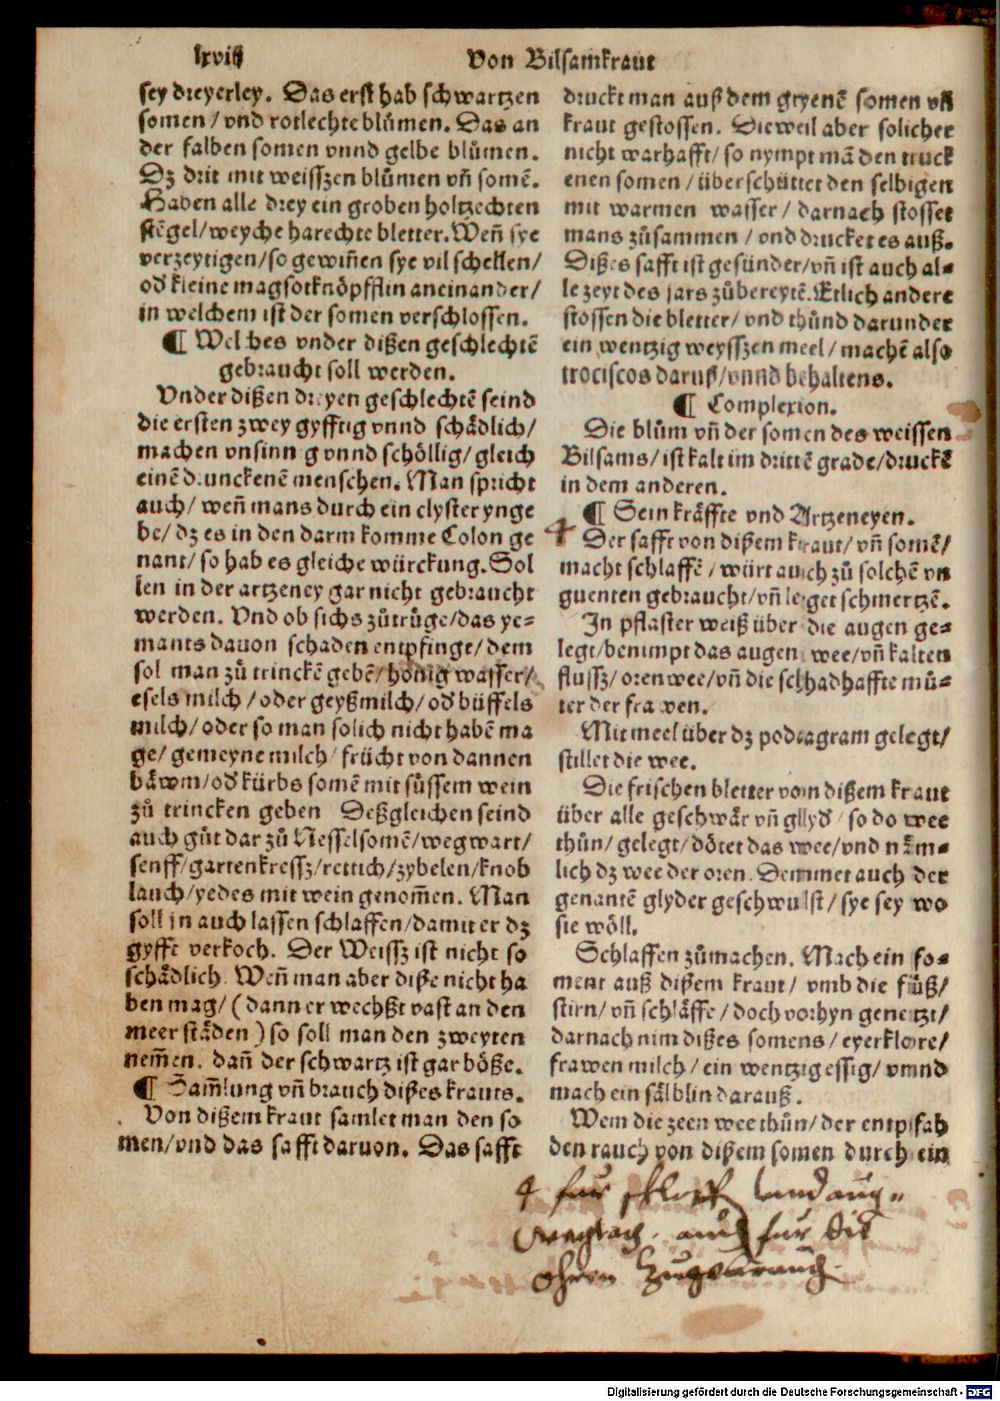 lxviij
Von Bilsamkraut
sey dreyerley. Das erst hab schwartzen
somen / vnd rotlechte blůmen. Das an
der falben somen vnnd gelbe blůmen.
Dz drit mit weisszen blůmen vñ somē.
Haben alle drey ein groben holtzechten
stēgel/weyche harechte bletter. Weñ sye
verzeytigen/so gewiñen sye vil schellen/
od̓ kleine magsotknöpfflin aneinander/
in welchem ist der somen verschlossen.
¶ Welches vnder dißen geschlechtē
gebraucht soll werden.
Vnder dißen dreyen geschlechtē seind
die ersten zwey gyfftig vnnd schådlich/
machen vnsinng vnnd schöllig/gleich
einē drunckenē menschen. Man spricht
auch/ weñ mans durch ein clyster ynge
be/ dz es in den darm komme Colon ge
nant/ so hab es gleiche würckung. Sol
len in der artzeney gar nicht gebraucht
werden. Vnd ob sichs zůtrůge/das ye=
mants dauon schaden entpfinge/ dem
sol man zů trinckē gebē/ hönig wasser/
esels milch / oder geyßmilch/ od̓ büffels
milch/ oder so man solich nicht habē ma
ge/ gemeyne milch/ frücht von dannen
båwm/od̓ kürbs somē mit sůssem wein
zů trincken geben Deßgleichen seind
auch gůt dar zů Nesselsomē/wegwart/
senff/gartenkressz/rettich/zybelen/knob
lauch/yedes mit wein genom̄en. Man
soll in auch lassen schlaffen/damit er dz
gyfft verkoch. Der Weissz ist nicht so
schådlich. Weñ man aber diße nicht ha
ben mag/ (dann er wechßt vast an den
meer ståden) so soll man den zweyten
nem̄en. dañ der schwartz ist gar böße.
¶ Sam̄lung vñ brauch dißes krauts.
Von dißem kraut samlet man den so
men/vnd das safft daruon. Das safft
druckt man auß dem gryenē somen vñ
kraut gestossen. Dieweil aber solicher
nicht warhafft/ so nympt mā den truck
enen somen / überschüttet den selbigen
mit warmen wasser/ darnach stosset
mans zůsammen / vnd drucket es auß.
Dißes safft ist gesünder/vñ ist auch al=
le zeyt des jars zůbereytē. Etlich andere
stossen die bletter/ vnd thůnd darunder
ein wentzig weysszen meel/ machē also
trociscos daruß/vnnd behaltens.
¶ Complexion.
Die blům vñ der somen des weissen
Bilsams/ ist kalt im drittē grade/druckē
in dem anderen.
¶ Sein kräffte vnd Artzeneyen.
4 Der safft von dißem kraut/ vñ somē/
macht schlaffē / würt auch zů solchē vn
guenten gebraucht/vñ leget schmertzē.
In pflaster weiß über die augen ge=
legt/benimpt das augen wee/vñ kalten
flussz/ oren wee/vñ die schadhaffte mů=
ter der frawen.
Mit meel über dz podragram gelegt/
stillet die wee.
Die frischen bletter von dißem kraut
über alle geschwår vñ glyd̓/ so do wee
thůn/ gelegt/ dötet das wee/vnd nåm=
lich dz wee der oren. Semmet auch der
genantē glyder geschwulst/ sye sey wo
sie wöll.
Schlaffen zůmachen. Mach ein fo=
ment auß dißem kraut/ vmb die fůß/
stirn/ vñ schläffe / doch vorhyn genetzt/
darnach nim dißes somens/ eyerklore/
frawen milch/ ein wentzig essig/ vnnd
mach ein sälblin darauß.
Wem die zeen wee thůn/ der entpfah
den rauch von dißem somen durch ein
4 fur schloff
fur die
ohren
Digitalisierung gefördert durch die Deutsche Forschungsgemeinschaft - DFG